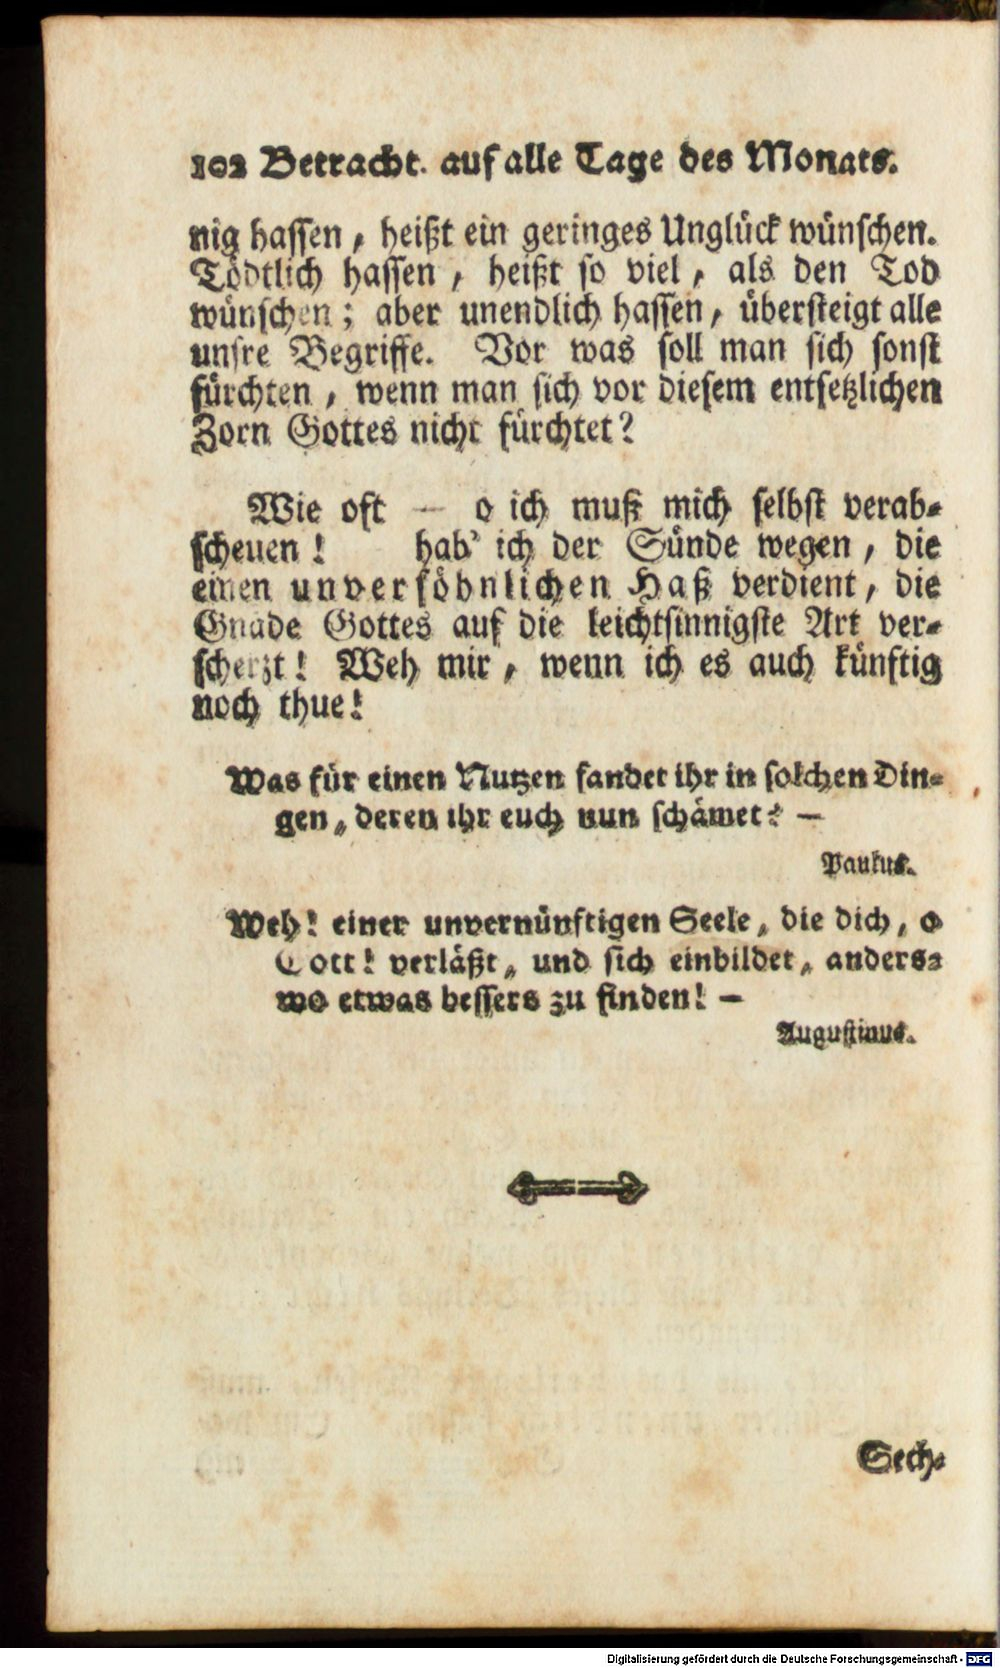 102 Betracht. auf alle Tage des Monats.
nig hassen, heißt ein geringes Unglück wünschen.
Tödtlich hassen, heißt so viel, als den Tod
wünschen; aber unendlich hassen, übersteigt alle
unsre Begriffe. Vor was soll man sich sonst
fürchten, wenn man sich vor diesem entsetzlichen
Zorn Gottes nicht fürchtet?
Wie oft — o ich muß mich selbst verab-
scheuen! hab' ich der Sünde wegen, die
einen unversöhnlichen Haß verdient, die
Gnade Gottes auf die leichtsinnigste Art ver-
scherzt! Weh mir, wenn ich es auch künftig
noch thue!
Was für einen Nutzen fandet ihr in solchen Din-
gen, deren ihr euch nun schämet? —
Paulus.
Weh! einer unvernünftigen Seele, die dich, o
Gott! verläßt, und sich einbildet, anders-
wo etwas bessers zu finden! —
Augustinus.
Sech-
Digitalisierung gefördert durch die Deutsche Forschungsgemeinschaft - DFG